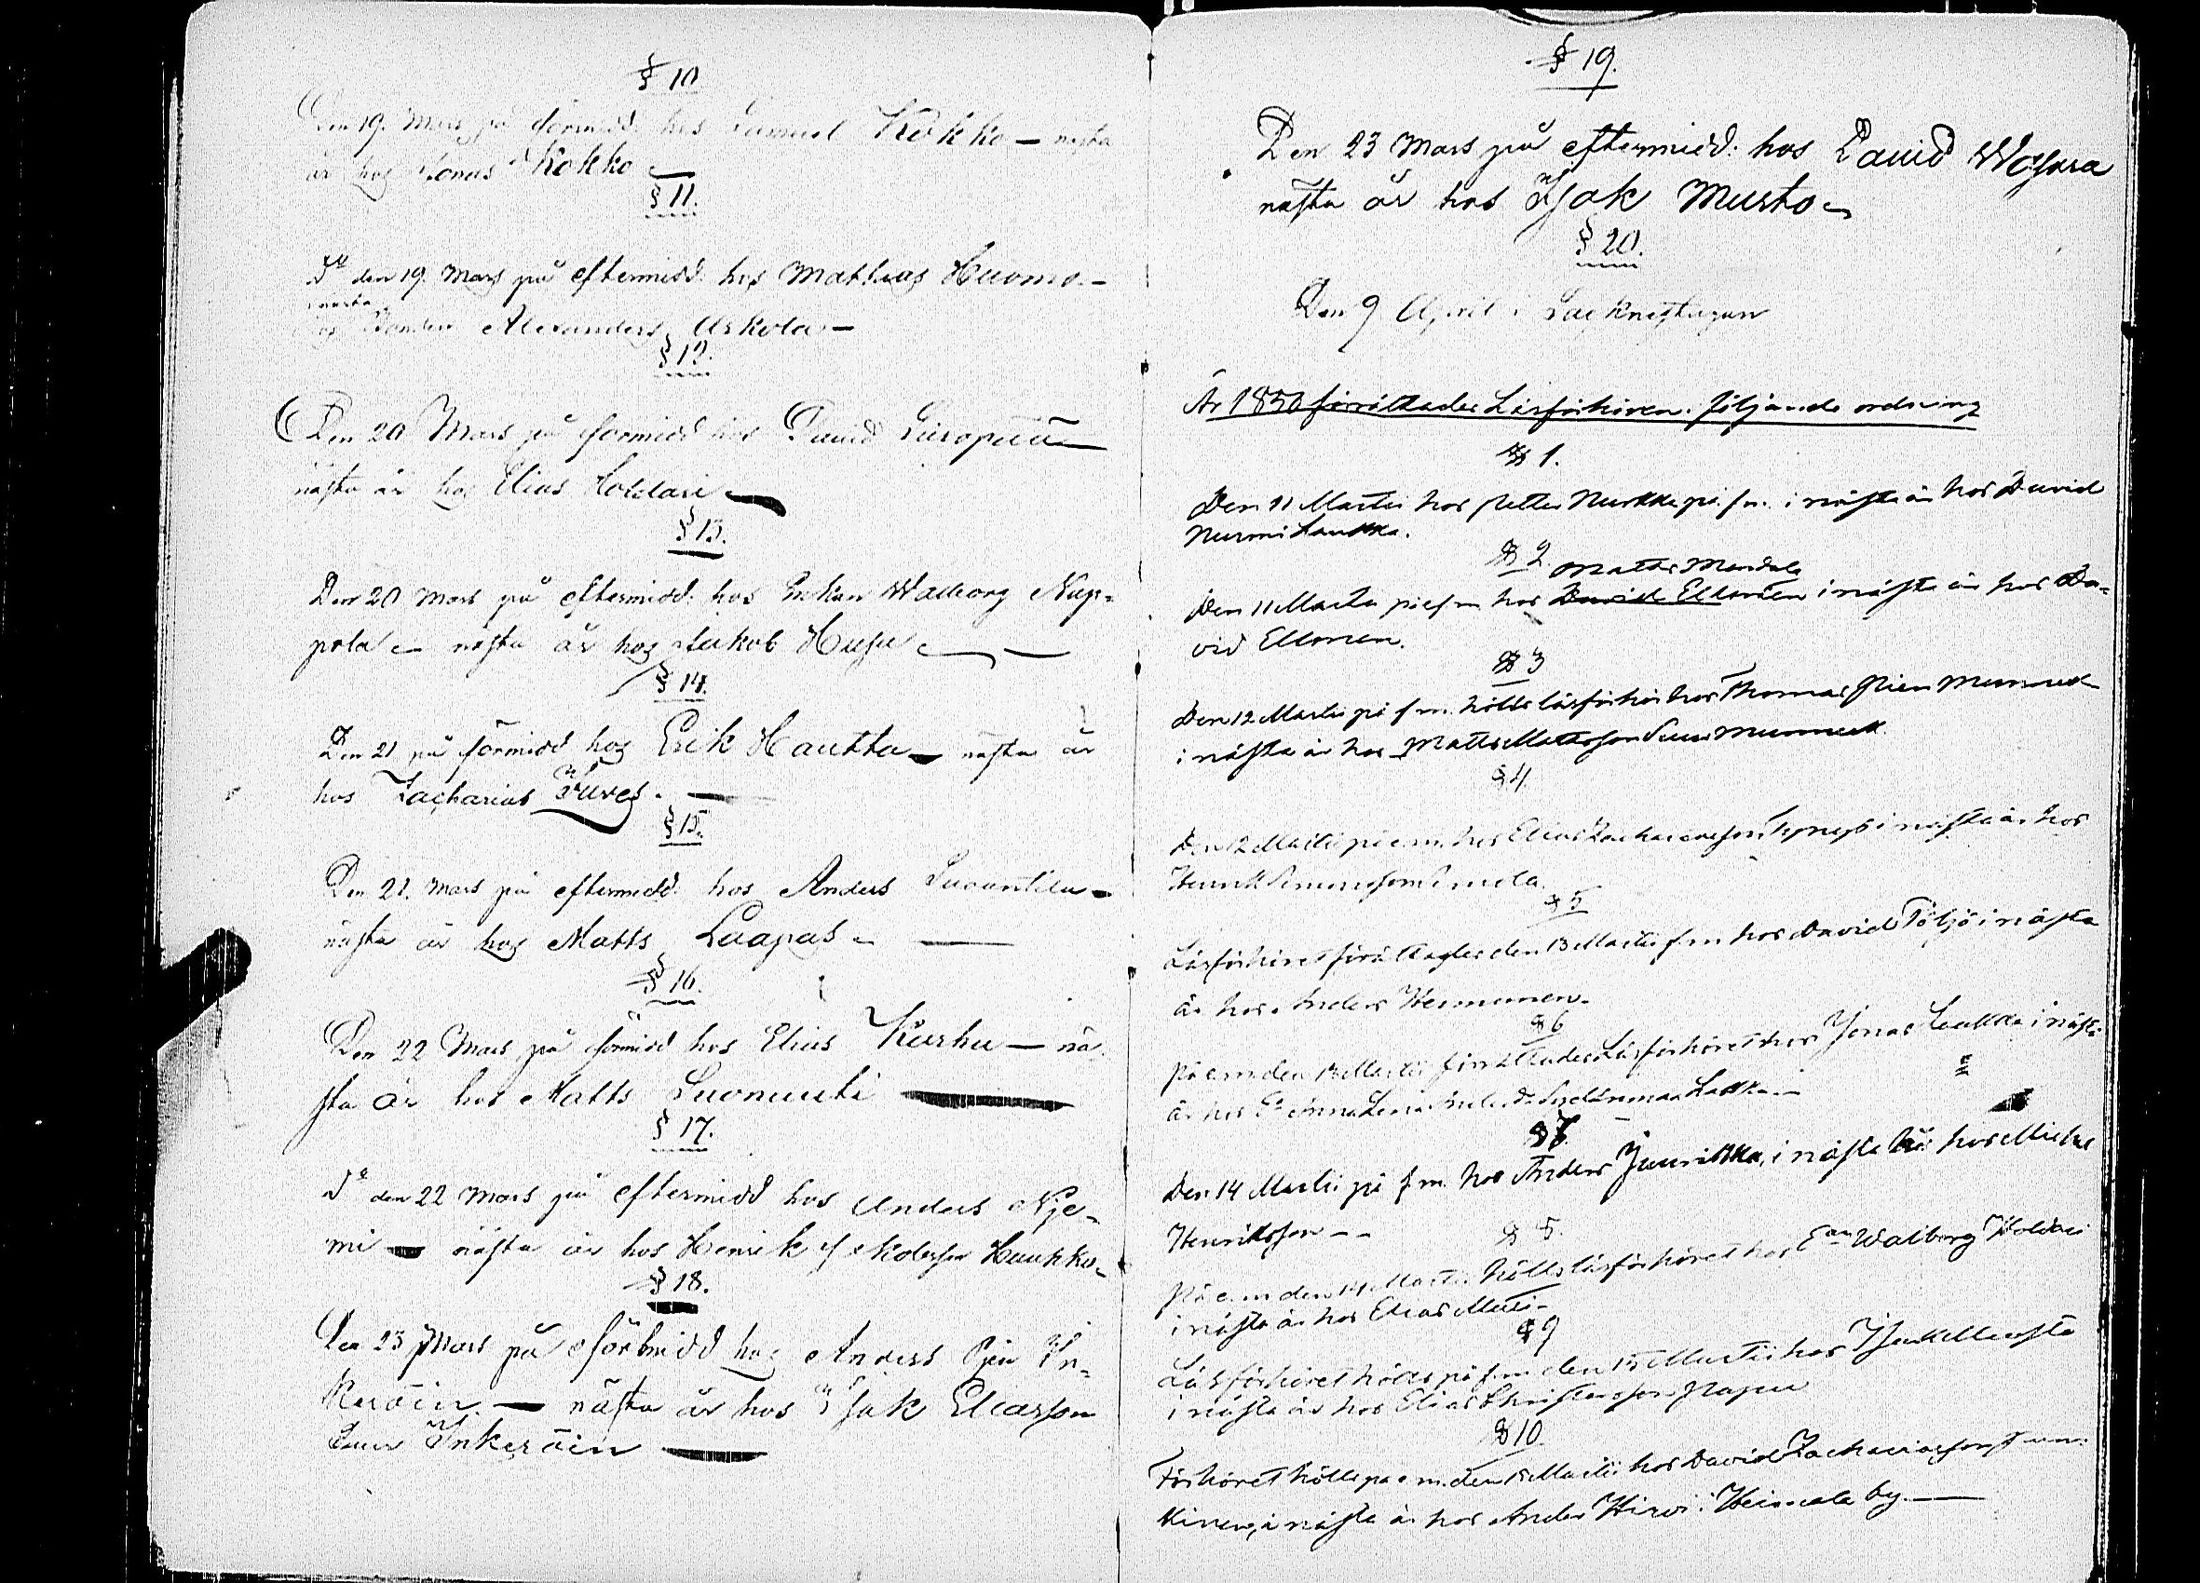 § 10
Den 19. Mars på förmidd. hos Samuel Kokko — nästa
år hos Jonas Kokko —
§ 11.
Id. den 19. Mars på eftermidd. hos Mathias Huomo —
nästa
hos Bonden Alexanders Arkola —
§ 12.
Den 20 Mars på förmidd hos David Europæus —
nästa år hos Elias Holdari —
§ 13.
Den 20 Mars på eftermidd. hos Enkan Walborg Nup-
pola — nästa år hos Jakob Husu —
§ 14.
Den 21 på förmidd hos Erik Hautta — nästa år
hos Zacharias Tuves. —
§ 15.
Den 21. Mars på eftermidd. hos Anders Suountila —
nästa år hos Matts Laapas —
§ 16.
Den 22 Mars på förmidd hos Elias Kurhu — nä-
sta år hos Matts Suomuuti —
§ 17.
Id. den 22 Mars på eftermidd hos Anders Nje-
mi — nästa år hos Henrik Huukko —
§ 18.
Den 23 Mars på förmidd hos Anders Pien In-
keröin — nästa år hos Isak Eliasson
Suur Inkeröin —
§ 19.
Den 23 Mars på eftermidd: hos David
nästa år hos Isak Musto —
§ 20.
Den 9 April i
År 1850 förrättades Läsförhören i följande ordning
§ 1.
Den 11 Martii hos Petter Nurkka på f.m. i nästa år hos David
Nurmi Laukka.
§ 2
Matts Mandola
Den 11 Martii på e.m. hos David Ellonen i nästa år hos Da-
vid Ellonen.
§ 3
Den 12 Martii på f.m. hölts läsförhör hos Thomas Pien Munnuk
i nästa år hos Matts Mattsson Suur Munnuk
§ 4
Den 12 Martii på e.m. hos Elias Zachariasson i nästa år hos
Henrik Simonsson Simola.
§ 5
Läsförhöret förrättades den 13 Martii f.m. hos David Töljö i nästa
år hos Anders Hemmonen.
§ 6
På e.m. den 13 Martii förrättades Läsförhöret hos Jonas Laukka i nästa
år hos E. Anna Lena
§ 7.
Den 14 Martii på f.m. hos Anders Juurikka, i nästa år hos Michel
Henriksson — -
§ 8.
På e.m. den 14 Martii hölts läsförhöret hos Ean Walborg Holdari
i nästa år hos Elias
§ 9
Läsförhöret hölts på f.m. den 15 Martii hos Isak Musto
i nästa år hos Elias Christersson
§ 10
Förhöret hölts på e.m. den 15 Martii hos David Zachariasson
i nästa år hos Anders Hirvi i Heimala by. —